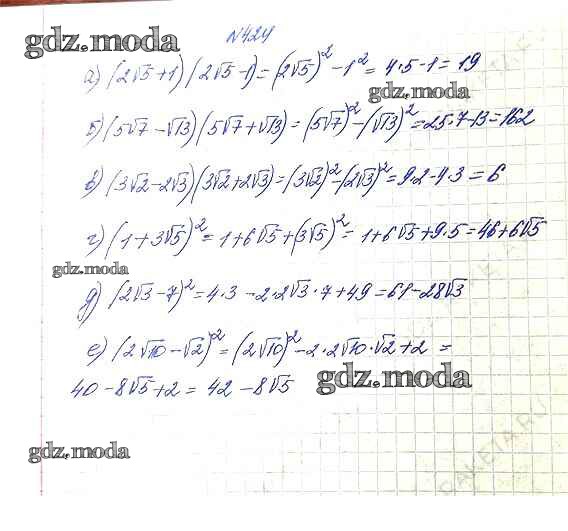 №424
gdz.moda
а) (2√5+1)(2√5-1)=(2√5)²-1²=4·5-1=19
gdz.moda
б) (5√7-√13)(5√7+√13)=(5√7)²-(√13)²=25·7-13=162
в) (3√2-2√3)(3√2+2√3)=(3√2)²-(2√3)²=9·2-4·3=6
г) (1+3√5)²=1+6√5+(3√5)²=1+6√5+9·5=46+6√5
gdz.moda
д) (2√3-7)²=4·3-2·2√3·7+49=61-28√3
е) (2√10-√2)²=(2√10)²-2·2√10·√2+2=
40-8√5+2=42-8√5
gdz.moda
gdz.moda
RAKETA.RU